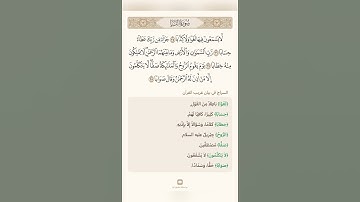 سُورَةُ النَّبَإِ
لَّا يَسْمَعُونَ فِيهَا لَغْوًا وَلَا كِذَّابًا ۝ جَزَاءً مِّن رَّبِّكَ عَطَاءً
حِسَابًا ۝ رَّبِّ السَّمَاوَاتِ وَالْأَرْضِ وَمَا بَيْنَهُمَا الرَّحْمَٰنِ لَا يَمْلِكُونَ
مِنْهُ خِطَابًا ۝ يَوْمَ يَقُومُ الرُّوحُ وَالْمَلَائِكَةُ صَفًّا لَّا يَتَكَلَّمُونَ
إِلَّا مَنْ أَذِنَ لَهُ الرَّحْمَٰنُ وَقَالَ صَوَابًا ۝
السراج في بيان غريب القرآن
﴿لَغْوًا﴾ بَاطِلًا مِنَ القَوْلِ.
﴿حِسَابًا﴾ كَثِيرًا، كَافِيًا لَهُمْ.
﴿خِطَابًا﴾ كَلَامًا، وَسُؤَالًا إِلَّا بِإِذْنِهِ.
﴿الرُّوحُ﴾ جِبْرِيلُ عليه السلام
﴿صَفًّا﴾ مُصْطَفِّينَ.
﴿لَا يَتَكَلَّمُونَ﴾ لَا يَشْفَعُونَ.
﴿صَوَابًا﴾ حَقًّا، وَسَدَادًا.